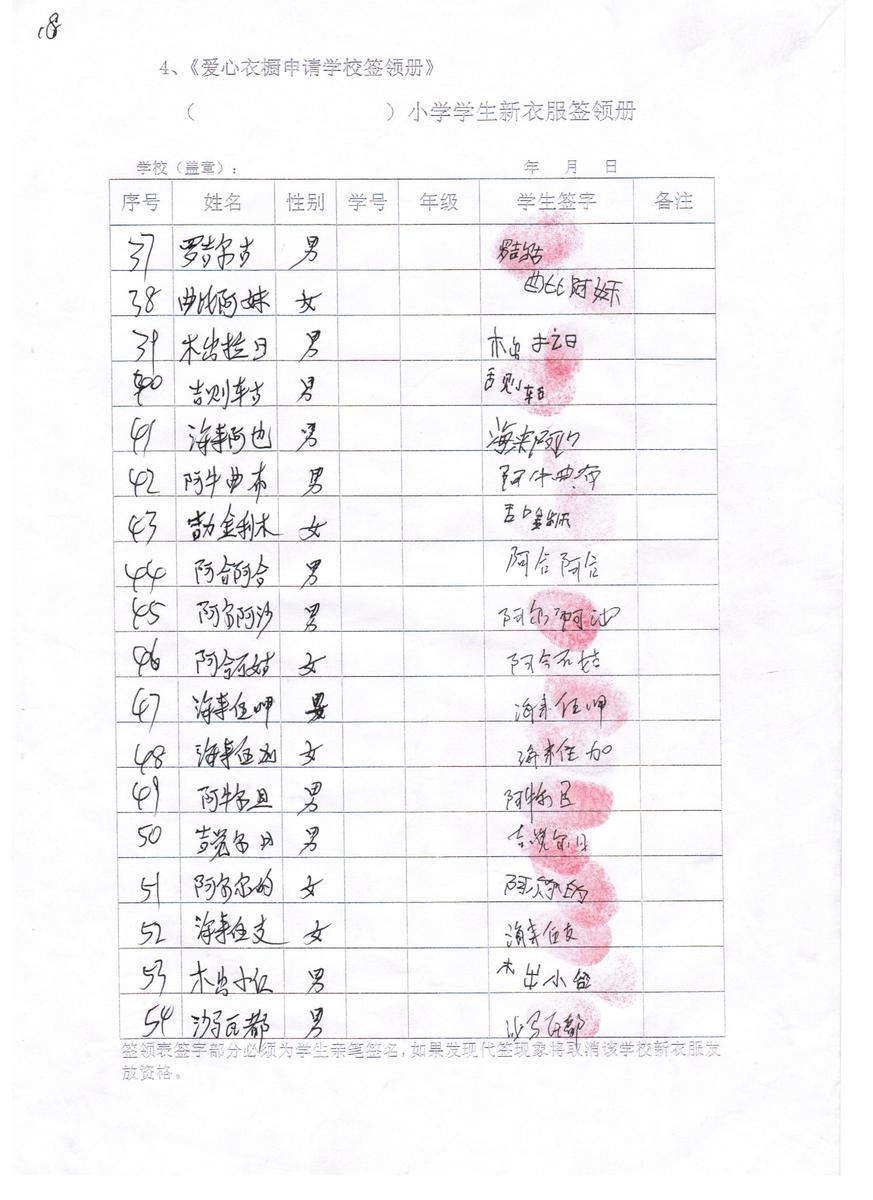 18
4、《爱心衣橱申请学校签领册》
（ ）小学学生新衣服签领册
学校（盖章）： 年 月 日
序号 姓名 性别 学号 年级 学生签字 备注
37 罗吉尔古 男
38 曲比阿妹 女 曲比阿妹
39 木出拉日 男 木出拉日
40 吉则车古 男 吉则车古
41 海来阿也 男 海来阿
42 阿牛曲布 男 阿牛曲布
43 金利木 女
44 阿合阿合 男 阿合阿合
45 阿尔阿沙 男 阿尔阿沙
46 阿合石姑 女 阿合石姑
47 海来伍呷 男 海来伍呷
48 海来伍加 女 海来伍加
49 阿牛尔且 男 阿牛尔
50 吉觉尔日 男 吉觉尔日
51 阿尔尔的 女 阿尔尔的
52 海来伍支 女 海来伍支
53 木出小 男 木出小
54 沙马瓦都 男 沙马瓦都
签领表签字部分必须为学生亲笔签名，如果发现代签现象将取消该学校新衣服发
放资格。